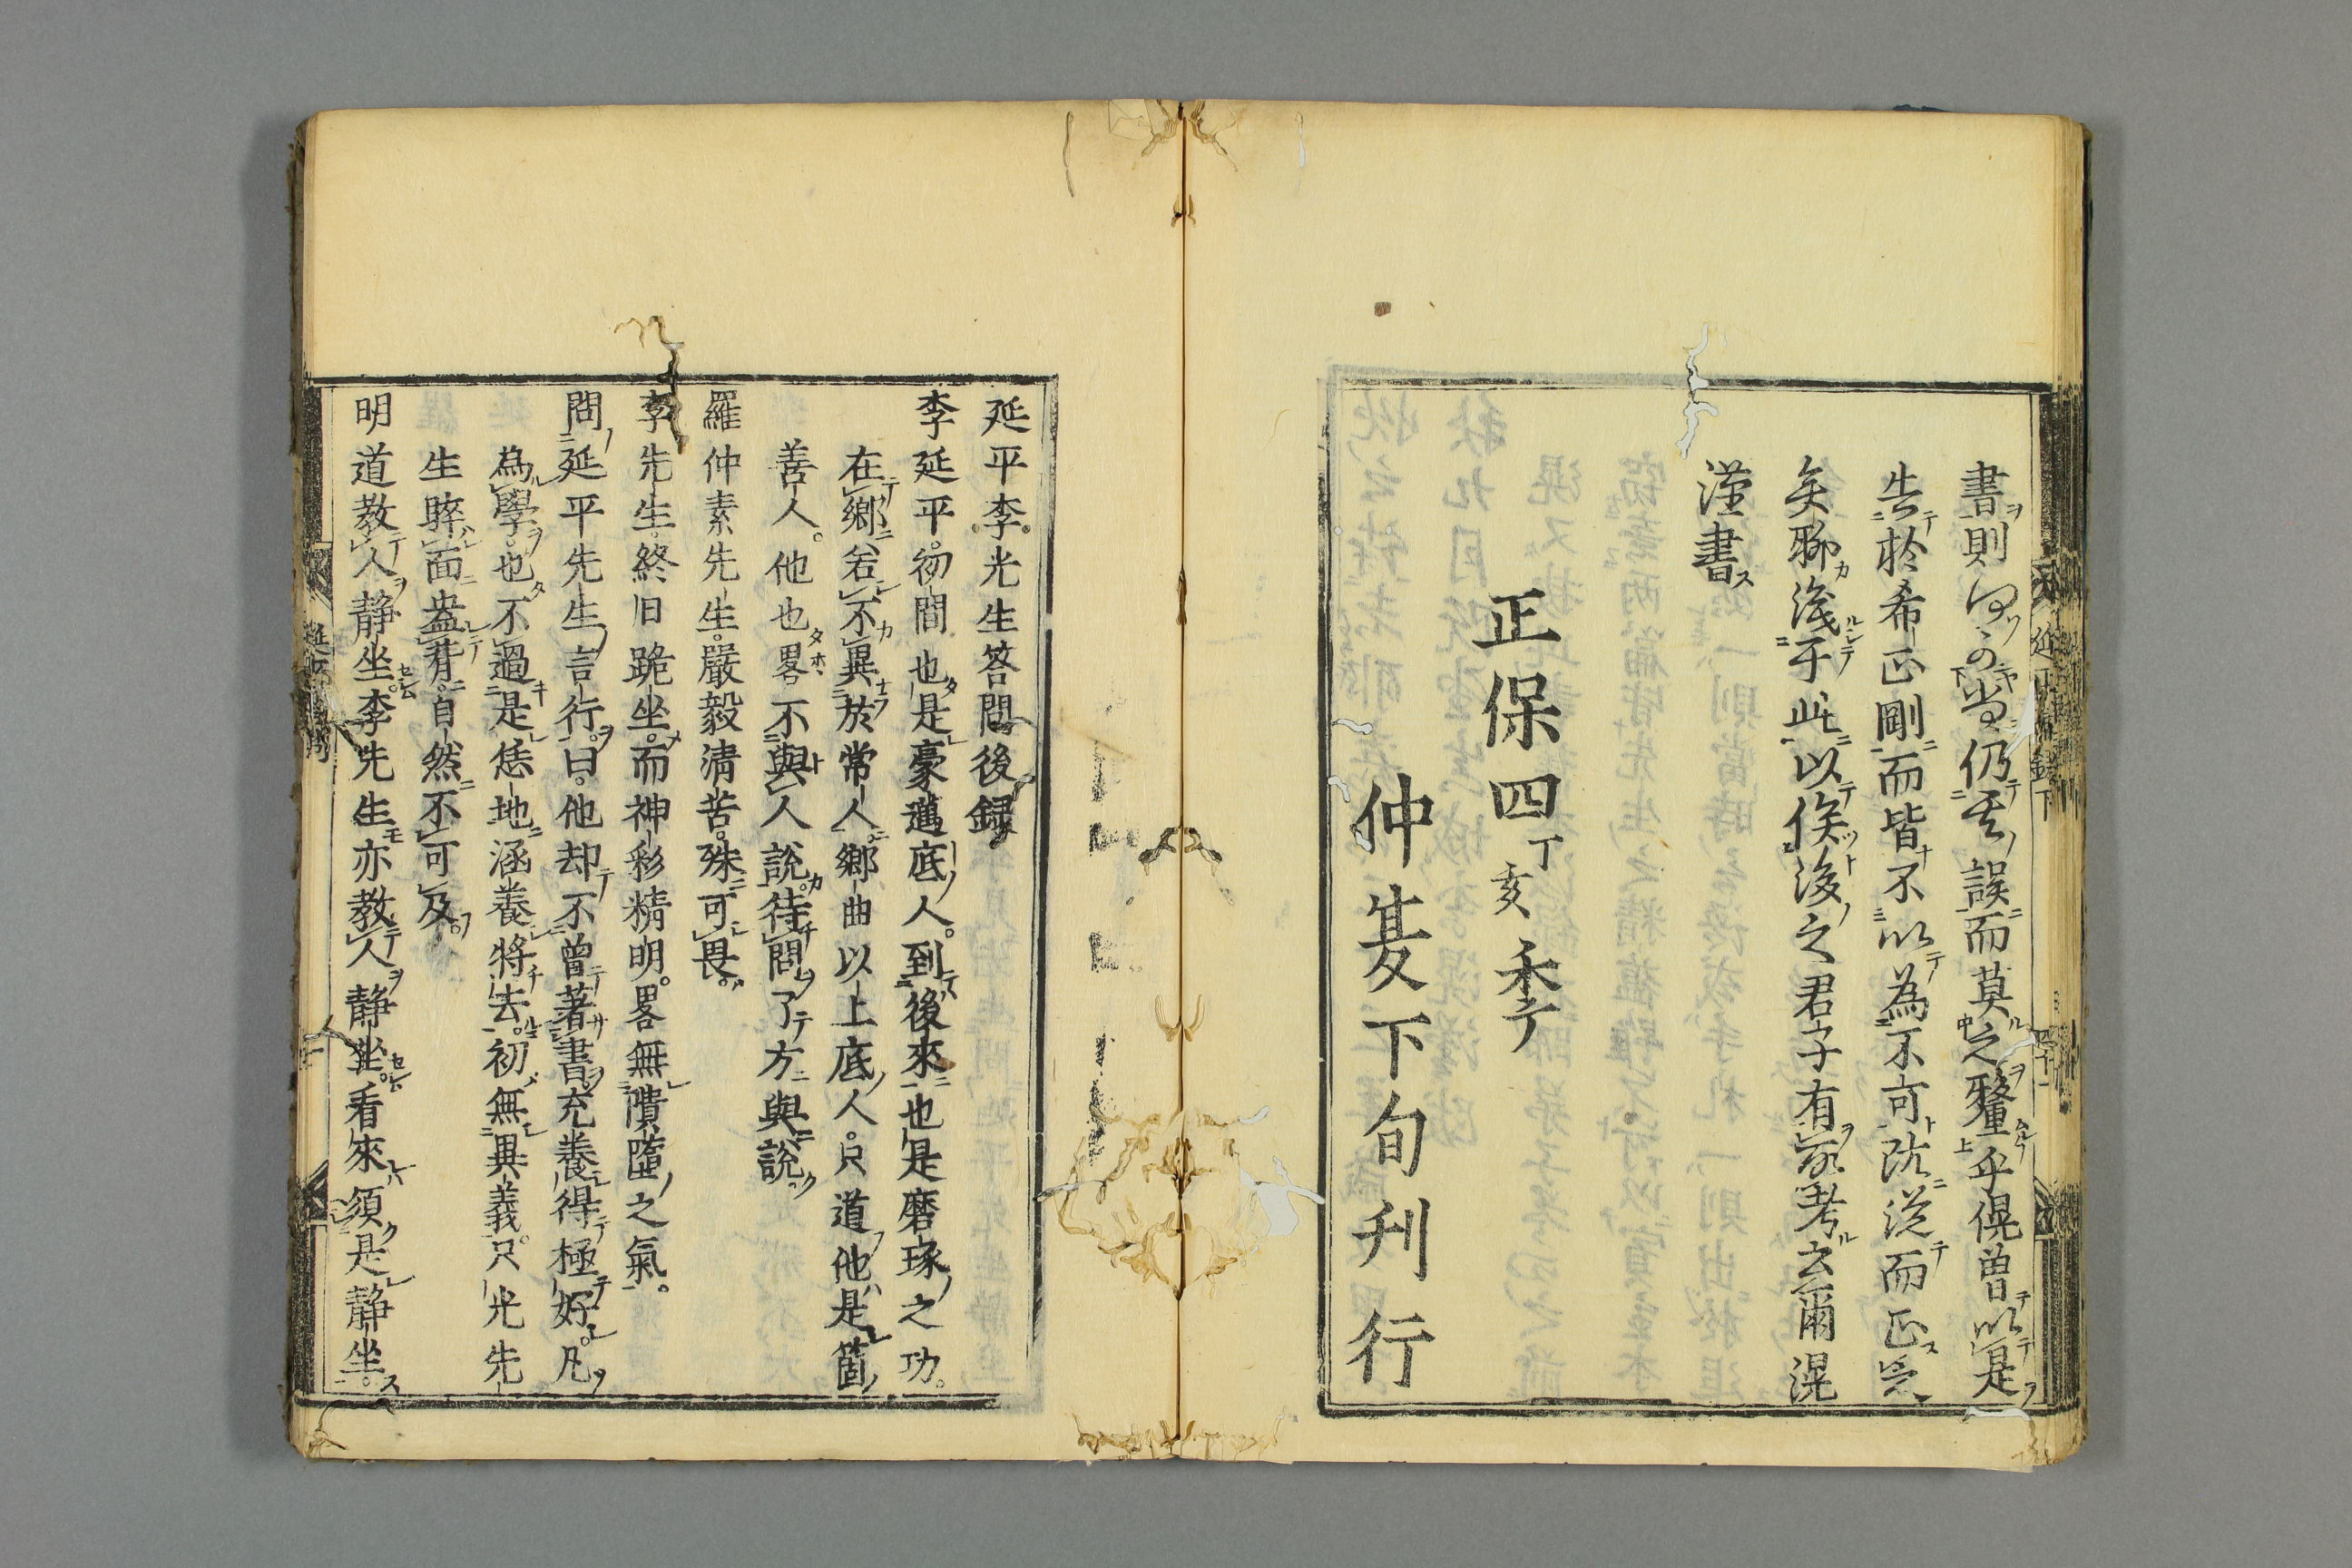 書則何可当仍其誤而莫之釐乎滉曽以是
告於希正剛而皆不以為不可既従而正完
矣聊浅于此以俟後之君子有所考云爾滉
謹書
正保四丁亥季
仲夏下旬刋行
延平李先生答問後録
李延平初間也是豪邁底人。到後來也是磨琢之功。
在鄉若不異於常人。鄉曲以上底人。只道他是箇
善人。他也畧不與人說。待問了方與說
羅仲素先生。嚴毅清苦。殊可畏。
李先生。終日跪坐。而神彩精明。畧無隤墮之氣。
問延平先生言行。曰。他却不曾著書。充養得極好。凡
為學。也不過是恁地涵養將去。初無異義。只先先
生睟面盎背。自然不可及。
明道教人静坐。李先生亦教人静坐。看來須是静坐。